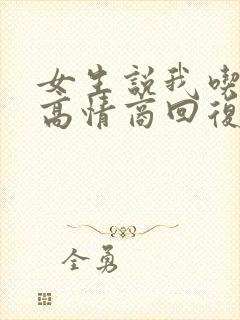 女生説我喫
高情商回復
全勇